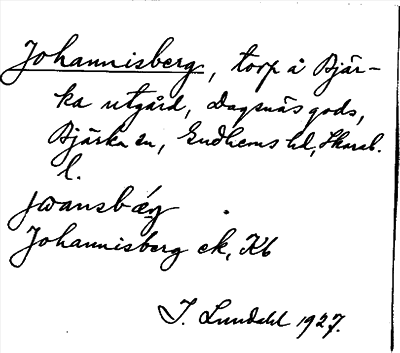 Johannisberg, torp å Bjär-
ka utgård, Dagsnäs gods,
Bjärka sn, Gudhems hd, Skarab.
l.
jwansbæ̀ɳ
Johannisberg ek, Kb
I. Lundahl 1927.